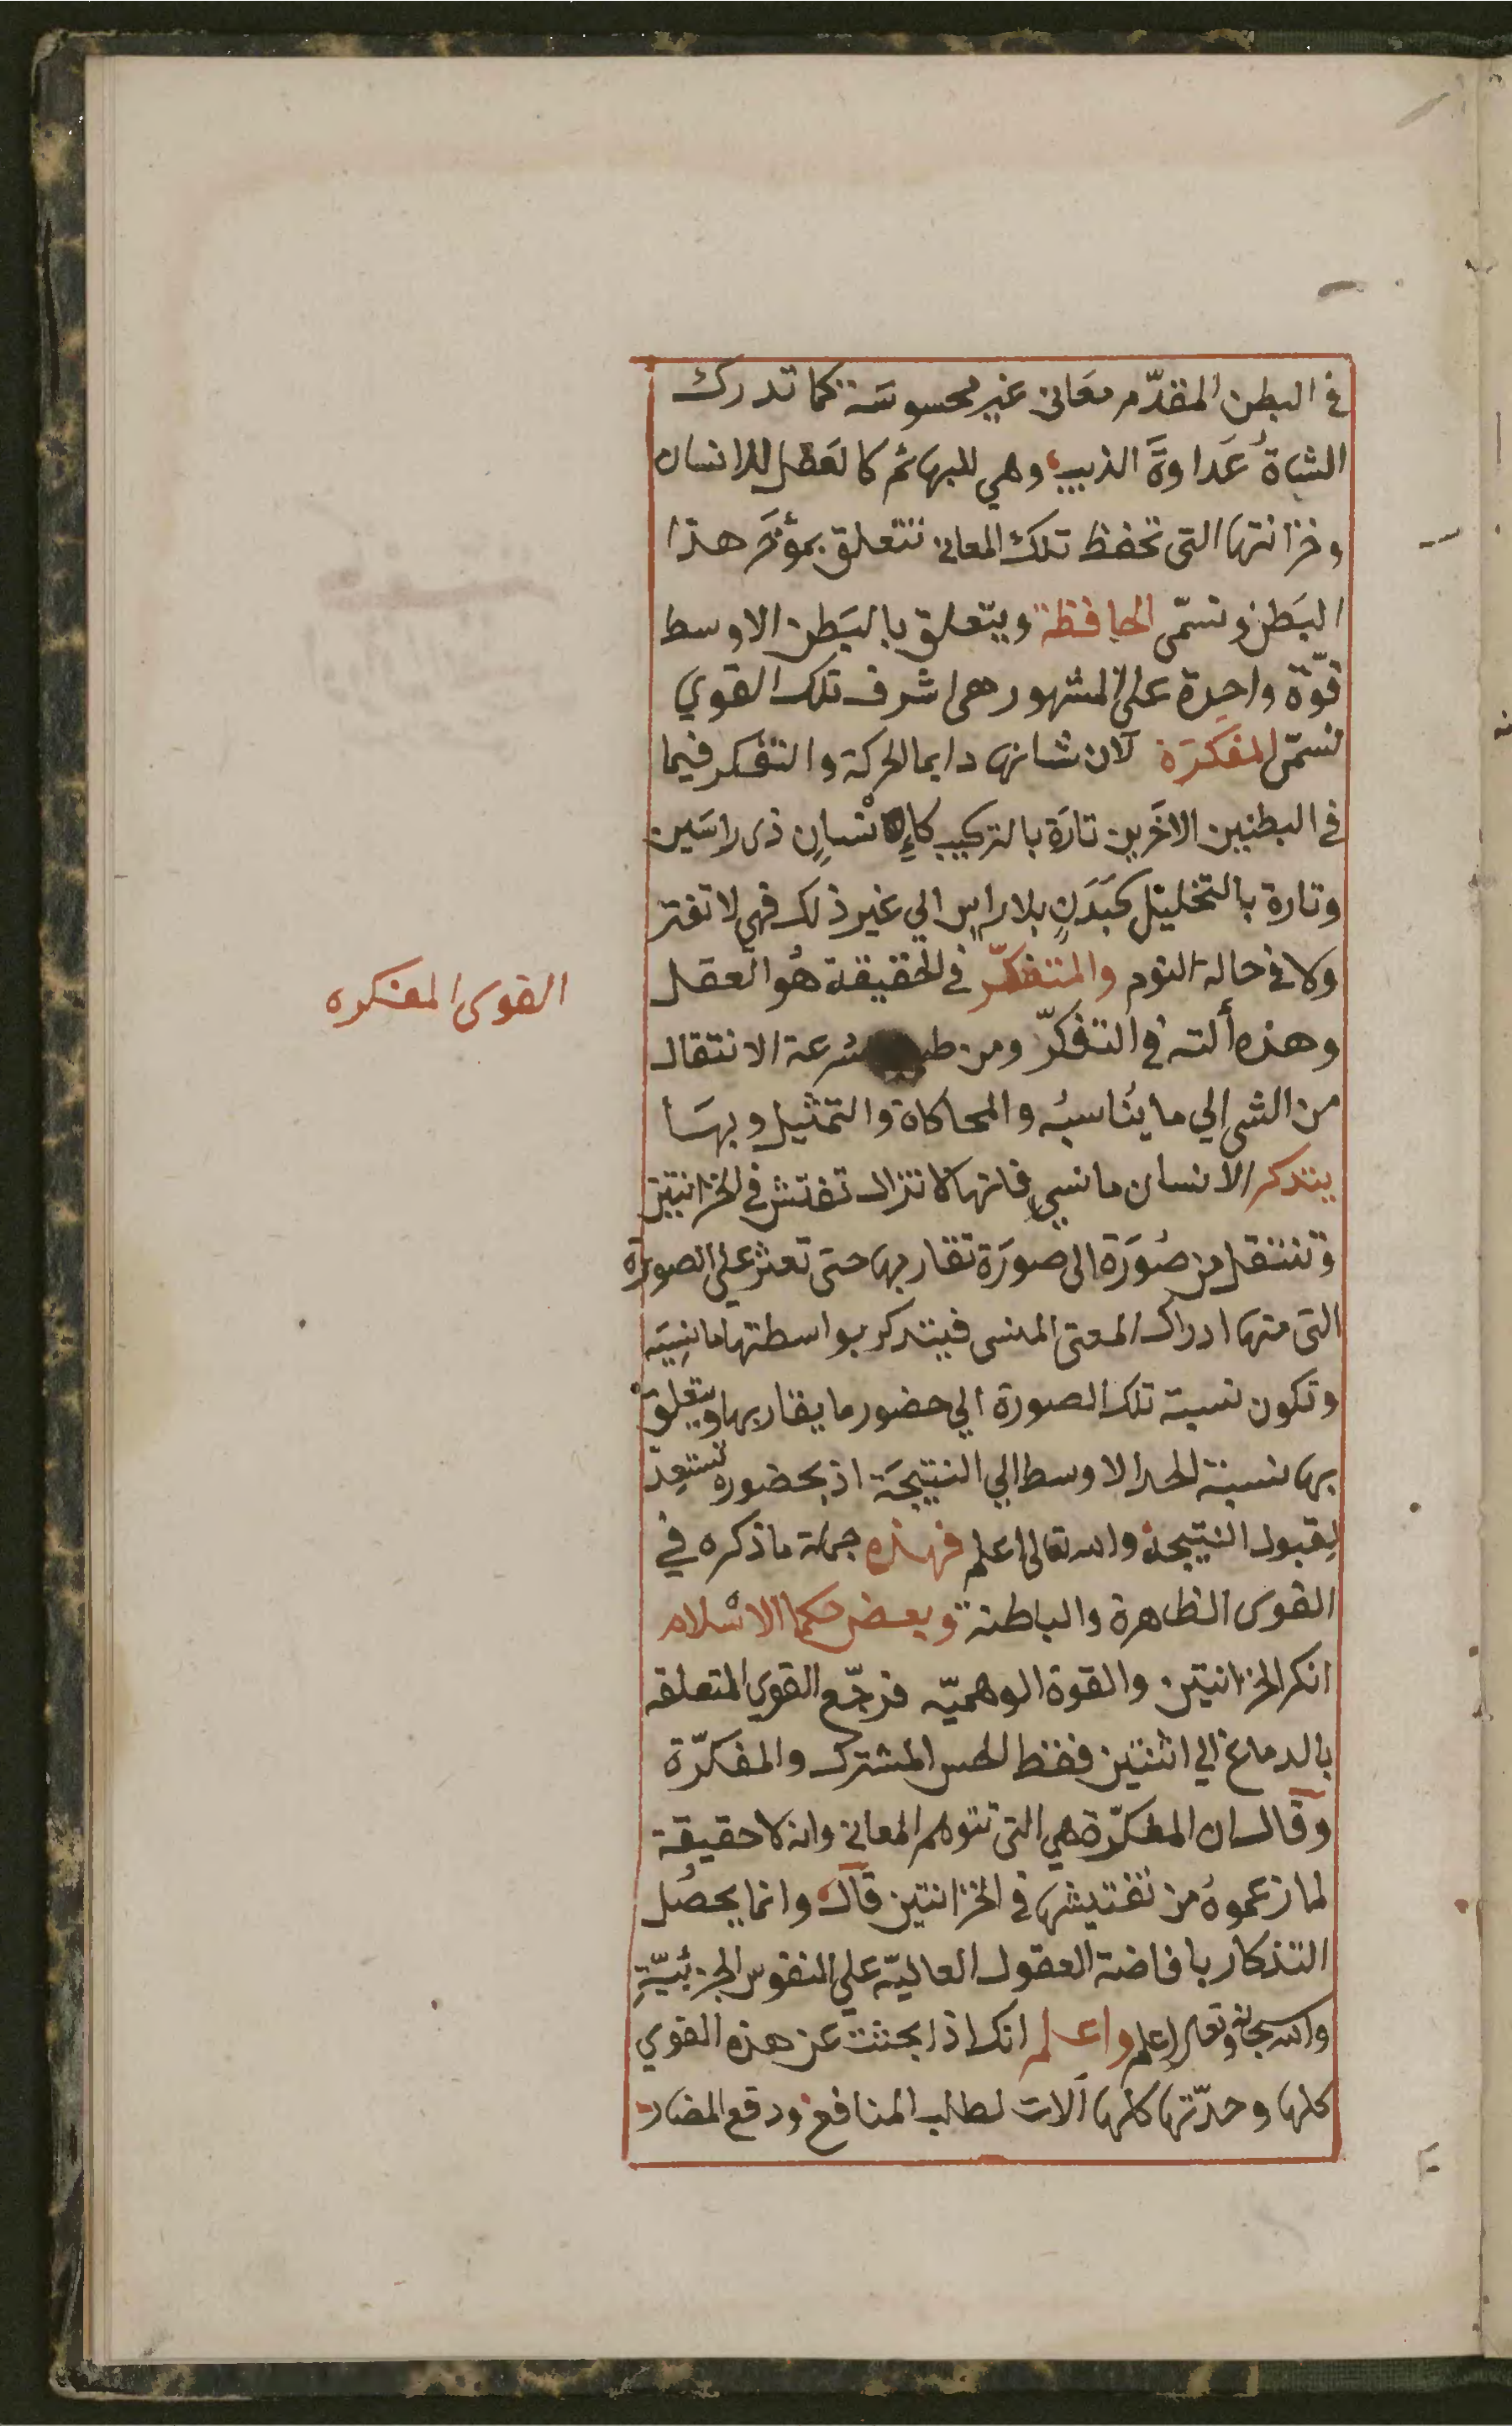 في البطن المقدّم معَاني غير محسوسَة كما تدرك
الشاةُ عَداوةَ الذيب وهي للبهائم كالعَقل للانسان
وخزانتها التي تحفظ تلك المعاني تتعلق بمؤخَر هذا
البَطن وتسمّى الحافظة ويتعلق بالبَطن الاوسط
قوّة واحدة على المشهور هي اشرف تلك القوي
تسمّى المفكرَة لان شانها دايما الحركة والتفكر فيما
في البطنين الاخَرين تارَة بالتركيب كإنْسانٍ ذي راسَين
وتارة بالتحليل كبَدَنٍ بلا راسٍ الي غير ذلك فهي لا تفتر
ولا في حالة النوم والمتفكّر في الحقيقة هُو العقل
وهذه ألته في التفكرّ ومن سُرعة الانتقال
من الشي الي ما يُناسبُه والمحاكاة والتمثيل وبهَا
يتدكر الانسان ما نسي فانها لا تزال تفتش في الخزانتين
وتنتقل من صُورَة الى صورَة تقاربها حتى تعثر على الصورة
التي منها ادراك المعنى المنسى فيتدكر بواسطتها ما نسِيَه
وتكون نسبة تلك الصورة الي حضور ما يقاربها ويتعلق
بها نسبة الحد الاوسط الي النتيجَة اذ بحضوره تستعِدّ
لقبول النتيجة والله تعالى اعلم فهذه جملة ما ذكره في
القوى الظاهرة والباطنة وبعض حكما الاسْلام
انكر الخزانتين والقوة الوهميّه فرجّع القوي المتعلقه
بالدماغ الي اثنتين فقط الحس المشترك والمفكرّة
وقال ان المفكرّة هي التي تتوهم المعاني وانه لا حقيقة
لما زعموهُ من تفتيشها في الخزانتين قال وانما يحصُل
التذكار بافاضة العقول العاليّه علي النفوس الجزئيّةِ
والله سبحانه وتعالى اعلم واعلم انك اذا بحثت عن هذه القوي
كلها وحدّتها كلها آلات لطلب المنافع ودفع المضار
القوى المفكره